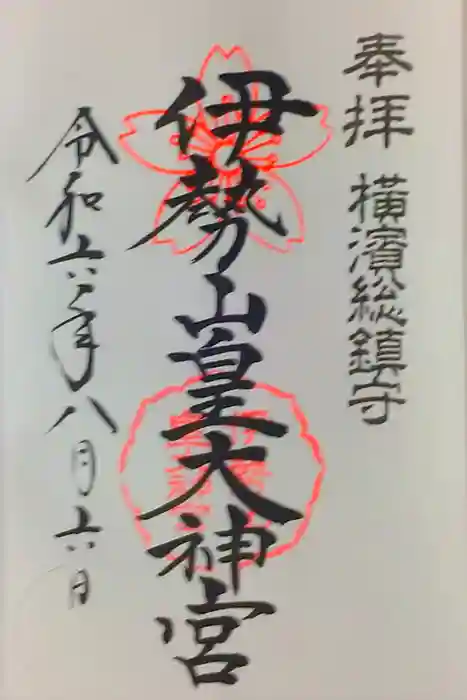 奉拝 横濱総鎮守
伊勢山皇大神宮
令和六年八月六日